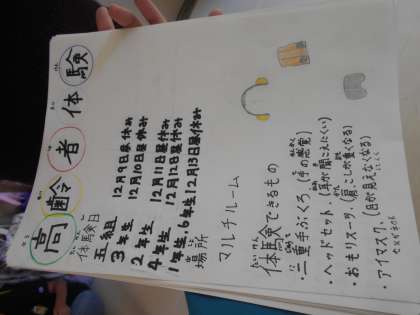 高齢者体験
体験日
五組 12月9日昼休み
3年生 12月10日昼休み
2年生
4年生 12月11日昼休み
1年生 12月12日昼休み
6年生 12月13日昼休み
場所
マルチルーム
体験できるもの
・二重手ぶくろ(手の感覚)
・ヘッドセット(耳が聞こえにくい)
・おもりスーツ(肩、こしが重くなる)
・アイマスク(目が見えなくなる)